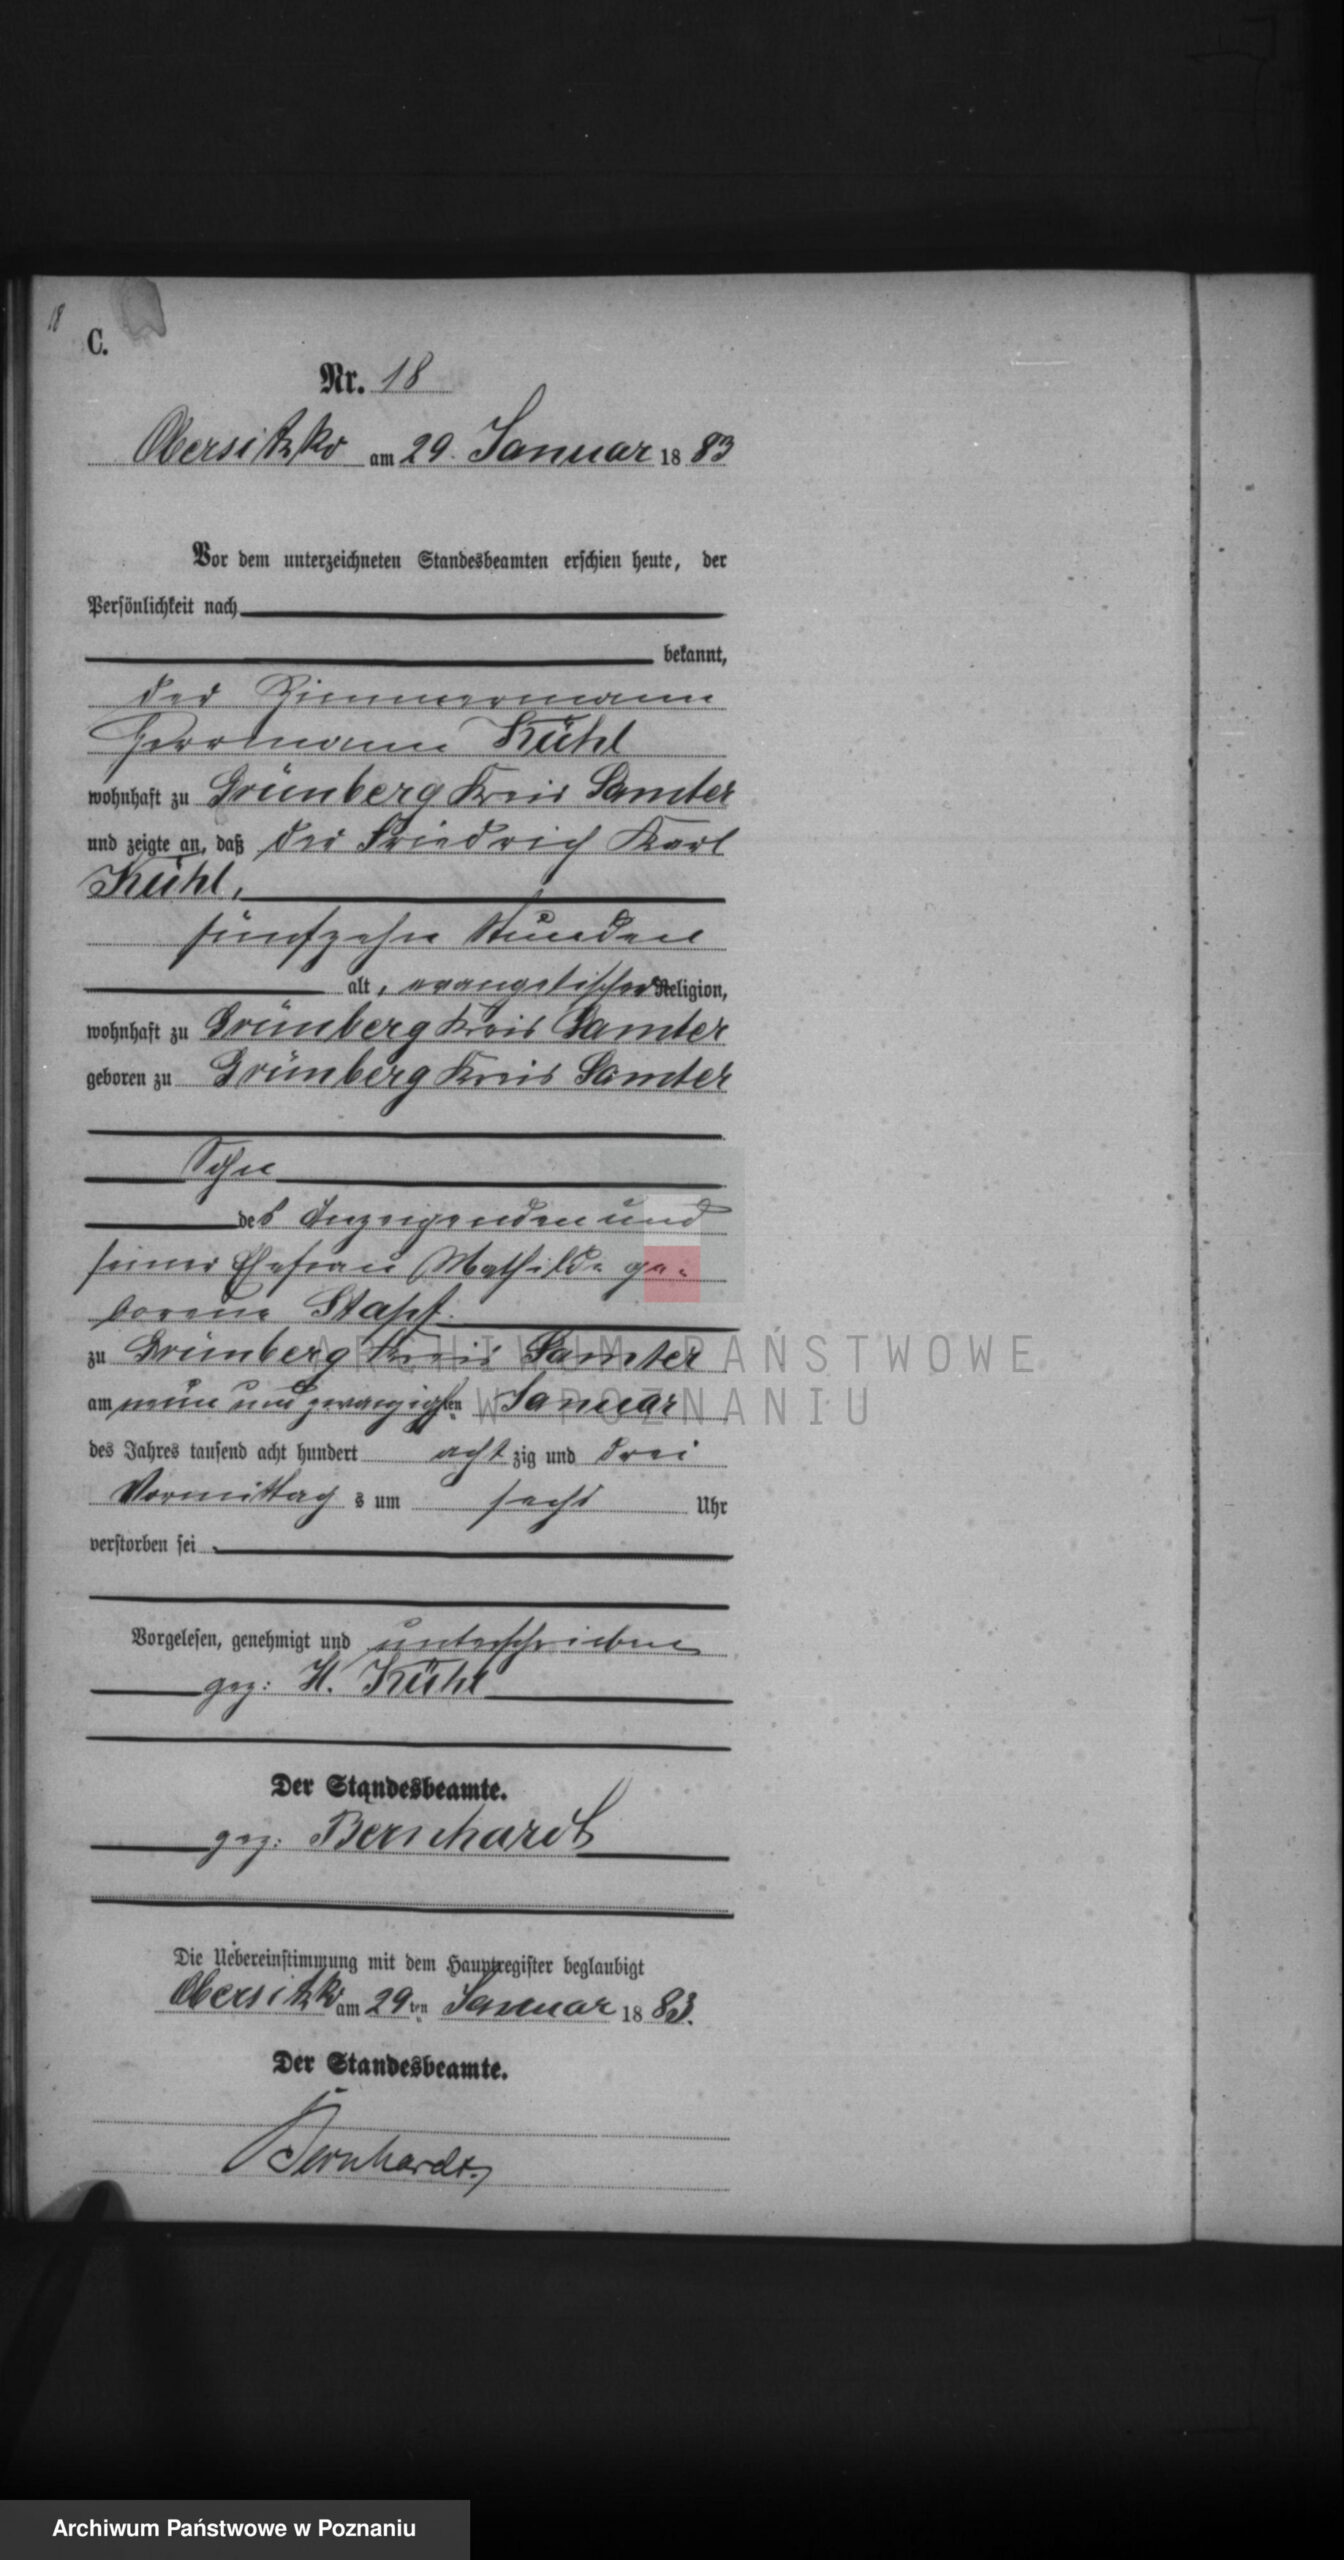 18
C.
Nr. 18
Obersitzko am 29. Januar 1883
Vor dem unterzeichneten Standesbeamten erschien heute, der
Persönlichkeit nach
bekannt,
der Zimmermann
Herrmann Kühl
wohnhaft zu Grünberg Kreis Samter
und zeigte an, daß der Friedrich Karl
Kühl,
fünfzehn Stunden
alt, evangelischer Religion,
wohnhaft zu Grünberg Kreis Samter
geboren zu Grünberg Kreis Samter
Sohn
des Anzeigenden und
seiner Ehefrau Mathilde ge-
borene Stapf
zu Grünberg Kreis Samter
am neun und zwanzigsten Januar
des Jahres tausend acht hundert acht zig und drei
Vormittag s um sechs Uhr
verstorben sei
Vorgelesen, genehmigt und unterschrieben
gez: H. Kühl
Der Standesbeamte.
gez: Bernhardt
Die Uebereinstimmung mit dem Hauptregister beglaubigt
Obersitzko am 29ten Januar 1883.
Der Standesbeamte.
Bernhardt
ARCHIWUM PAŃSTWOWE
W POZNANIU
Archiwum Państwowe w Poznaniu